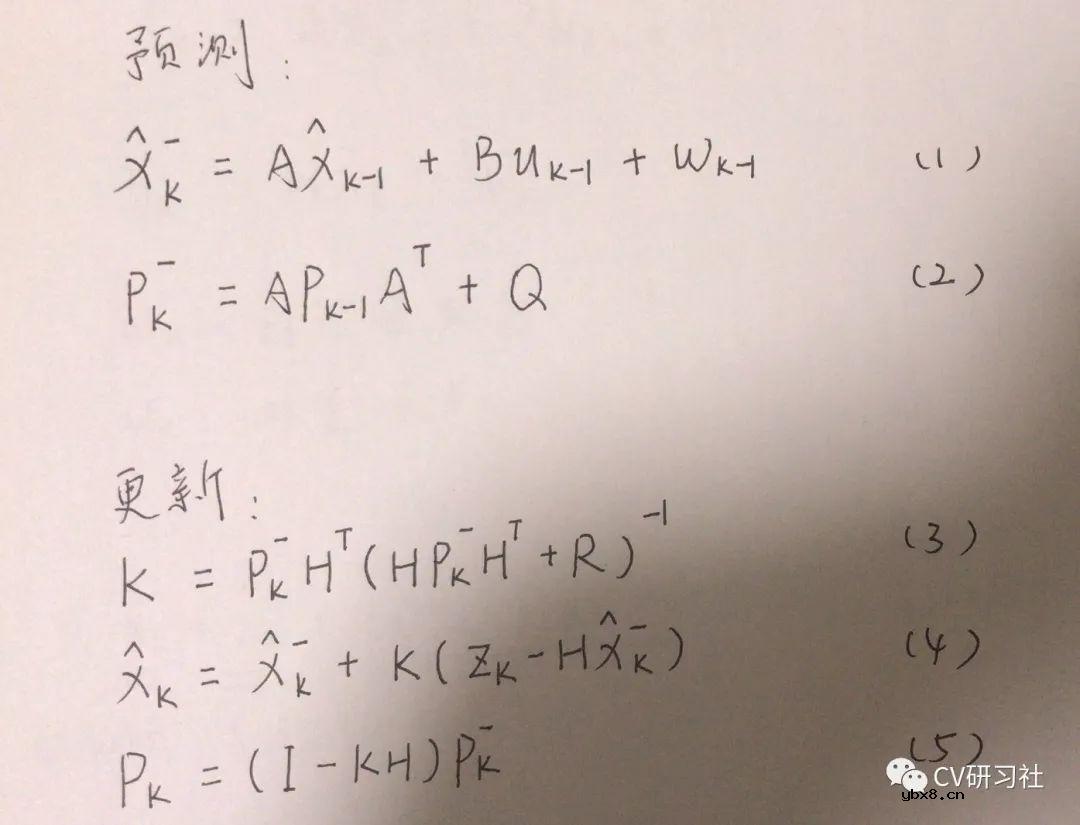 预测:
X̂ₖ⁻ = AX̂ₖ₋₁ + Buₖ₋₁ + wₖ₋₁ (1)
Pₖ⁻ = APₖ₋₁Aᵀ + Q (2)
更新:
K = Pₖ⁻Hᵀ(HPₖ⁻Hᵀ + R)⁻¹ (3)
X̂ₖ = X̂ₖ⁻ + K(Zₖ - HX̂ₖ⁻) (4)
Pₖ = (I - KH)Pₖ⁻ (5)
CV研习社
ybx8.cn